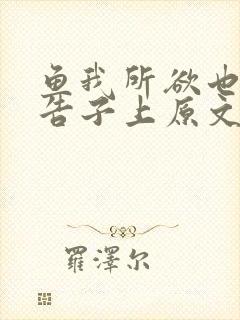 鱼我所欲也
告子上原文
羅澤尔